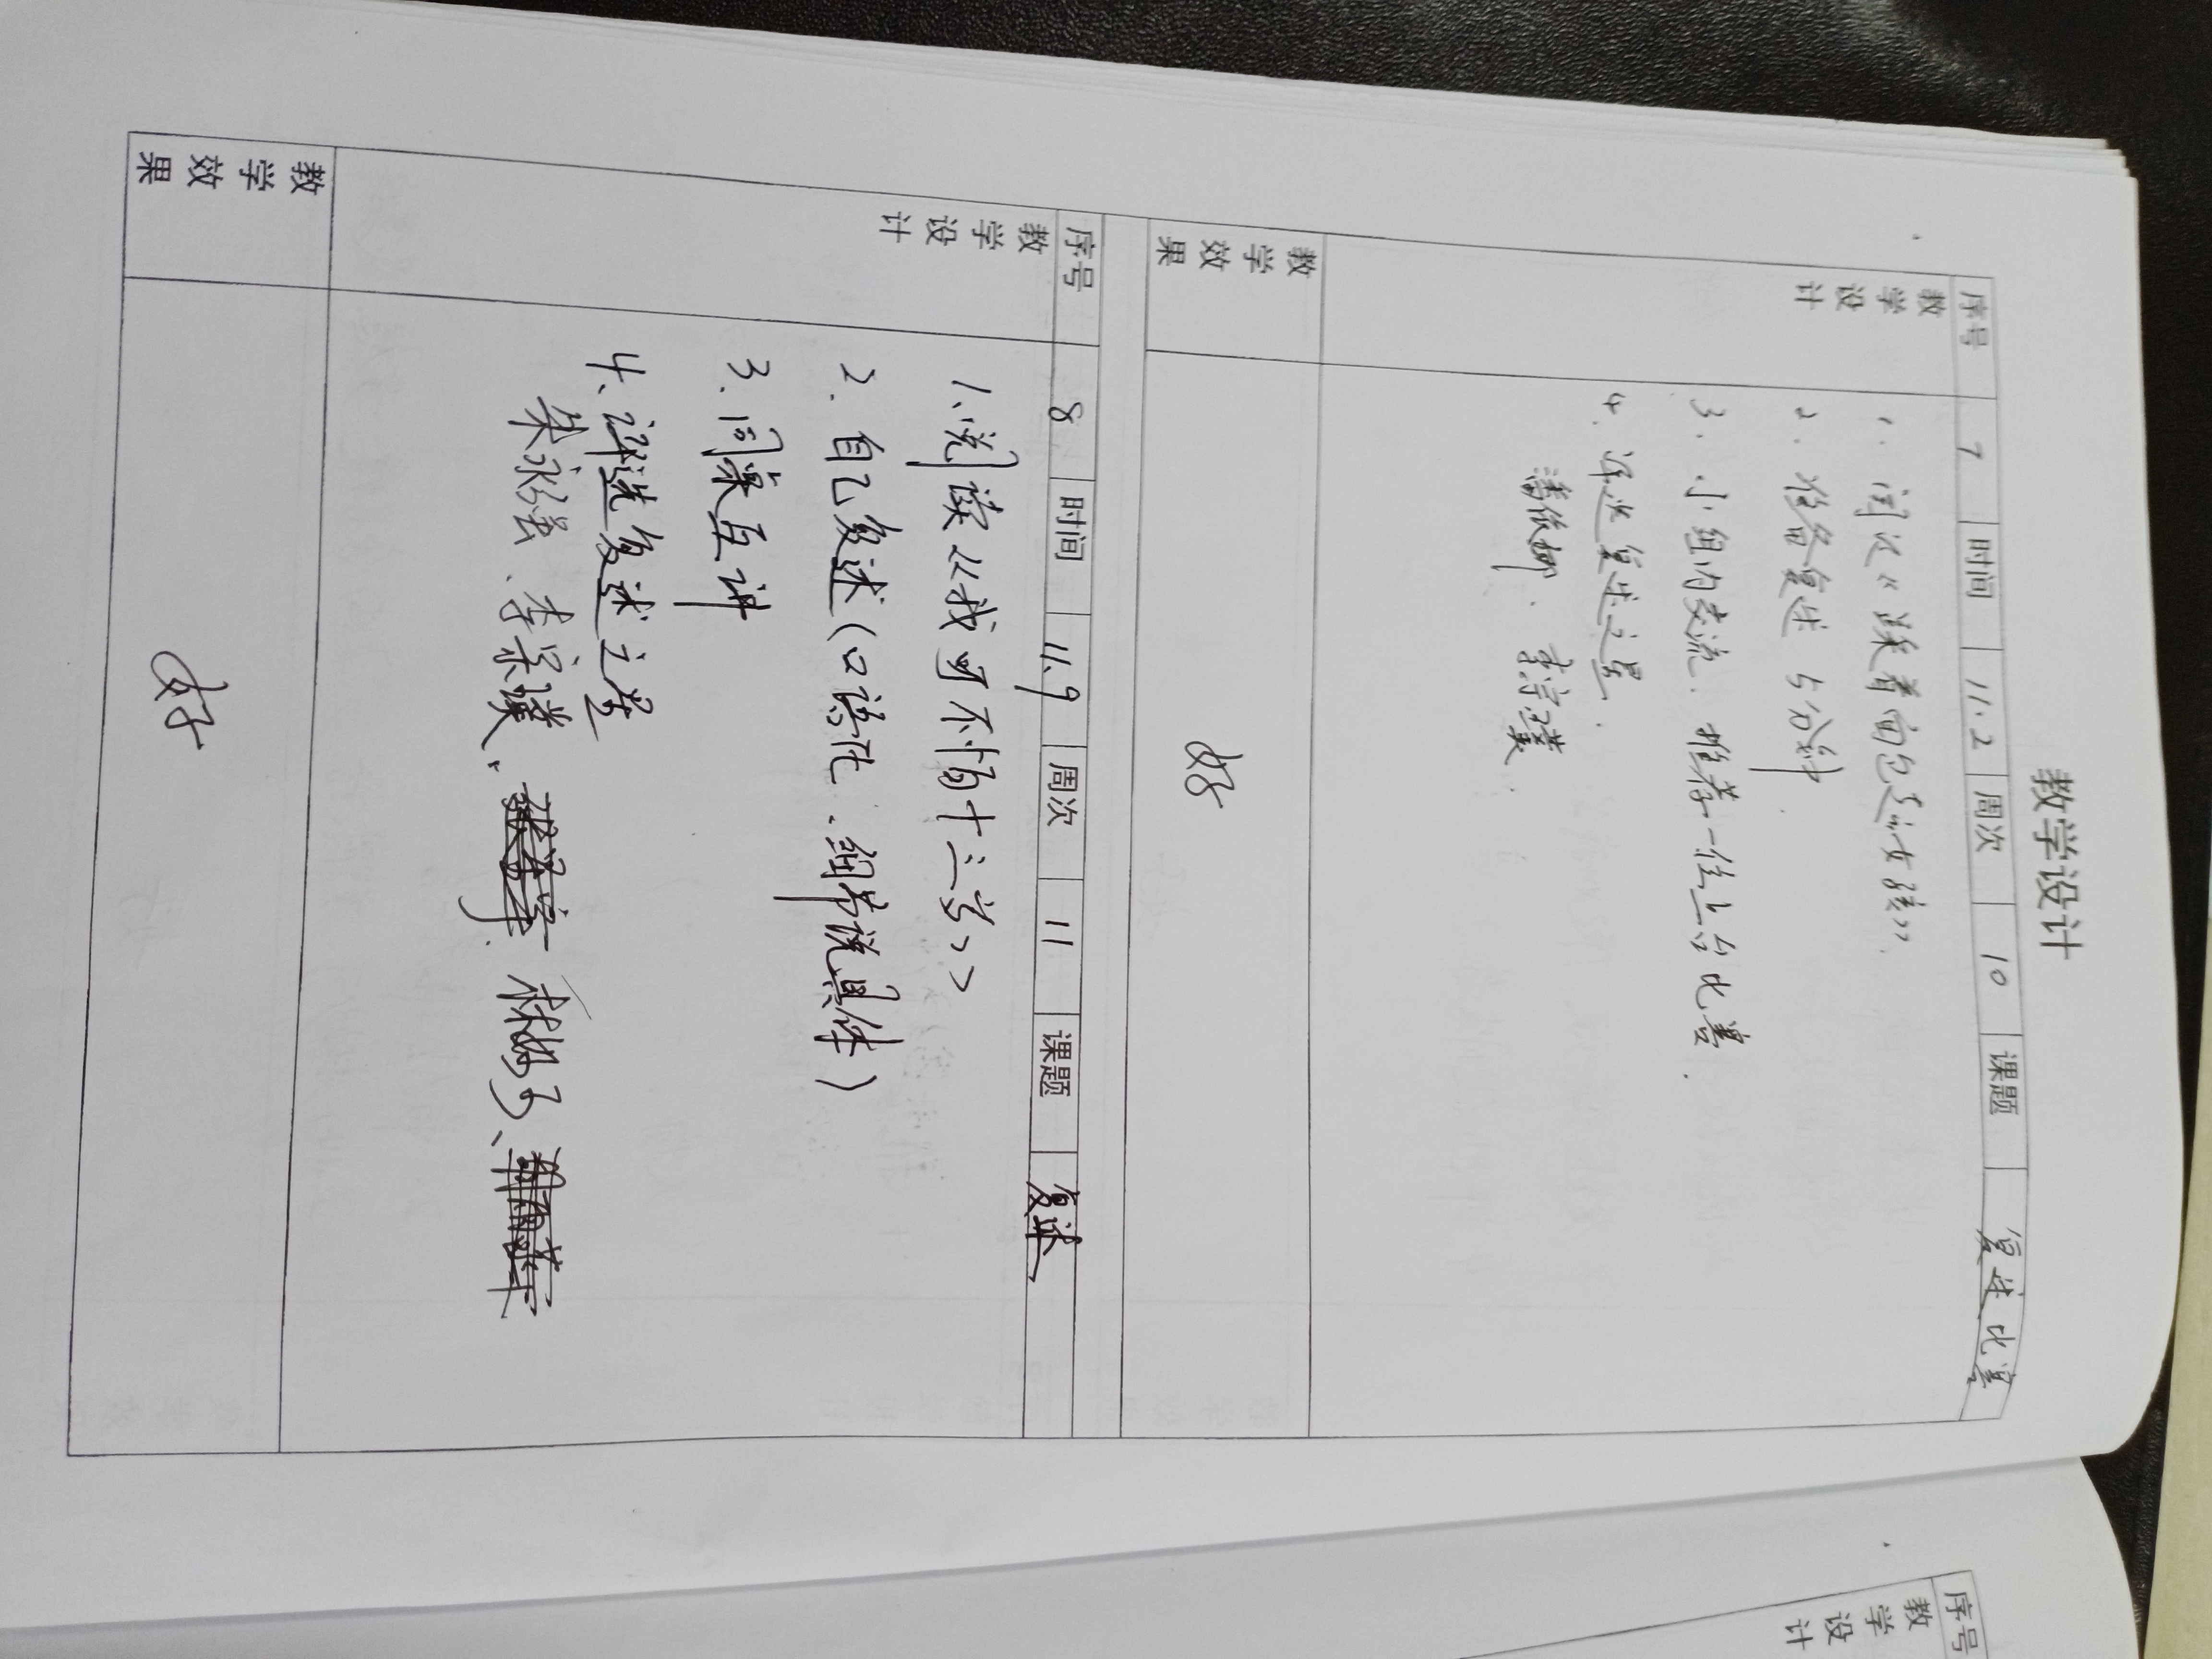 教学设计
序号 7 时间 11.2 周次 10 课题 复述比赛
教学设计
1. 阅读《踩着面包走的女孩》.
2. 准备复述 5分钟.
3. 小组内交流. 推荐一位上台比赛.
4. 评选复述之星.
李宗璞.
教学效果
好
序号 8 时间 11.9 周次 11 课题 复述
教学设计
1、阅读《我可不怕十三岁》
2. 自己复述(口语化. 细节说具体)
3. 同桌互讲
4、评选复述之星
李宗璞、
教学效果
好
序号
教学设计